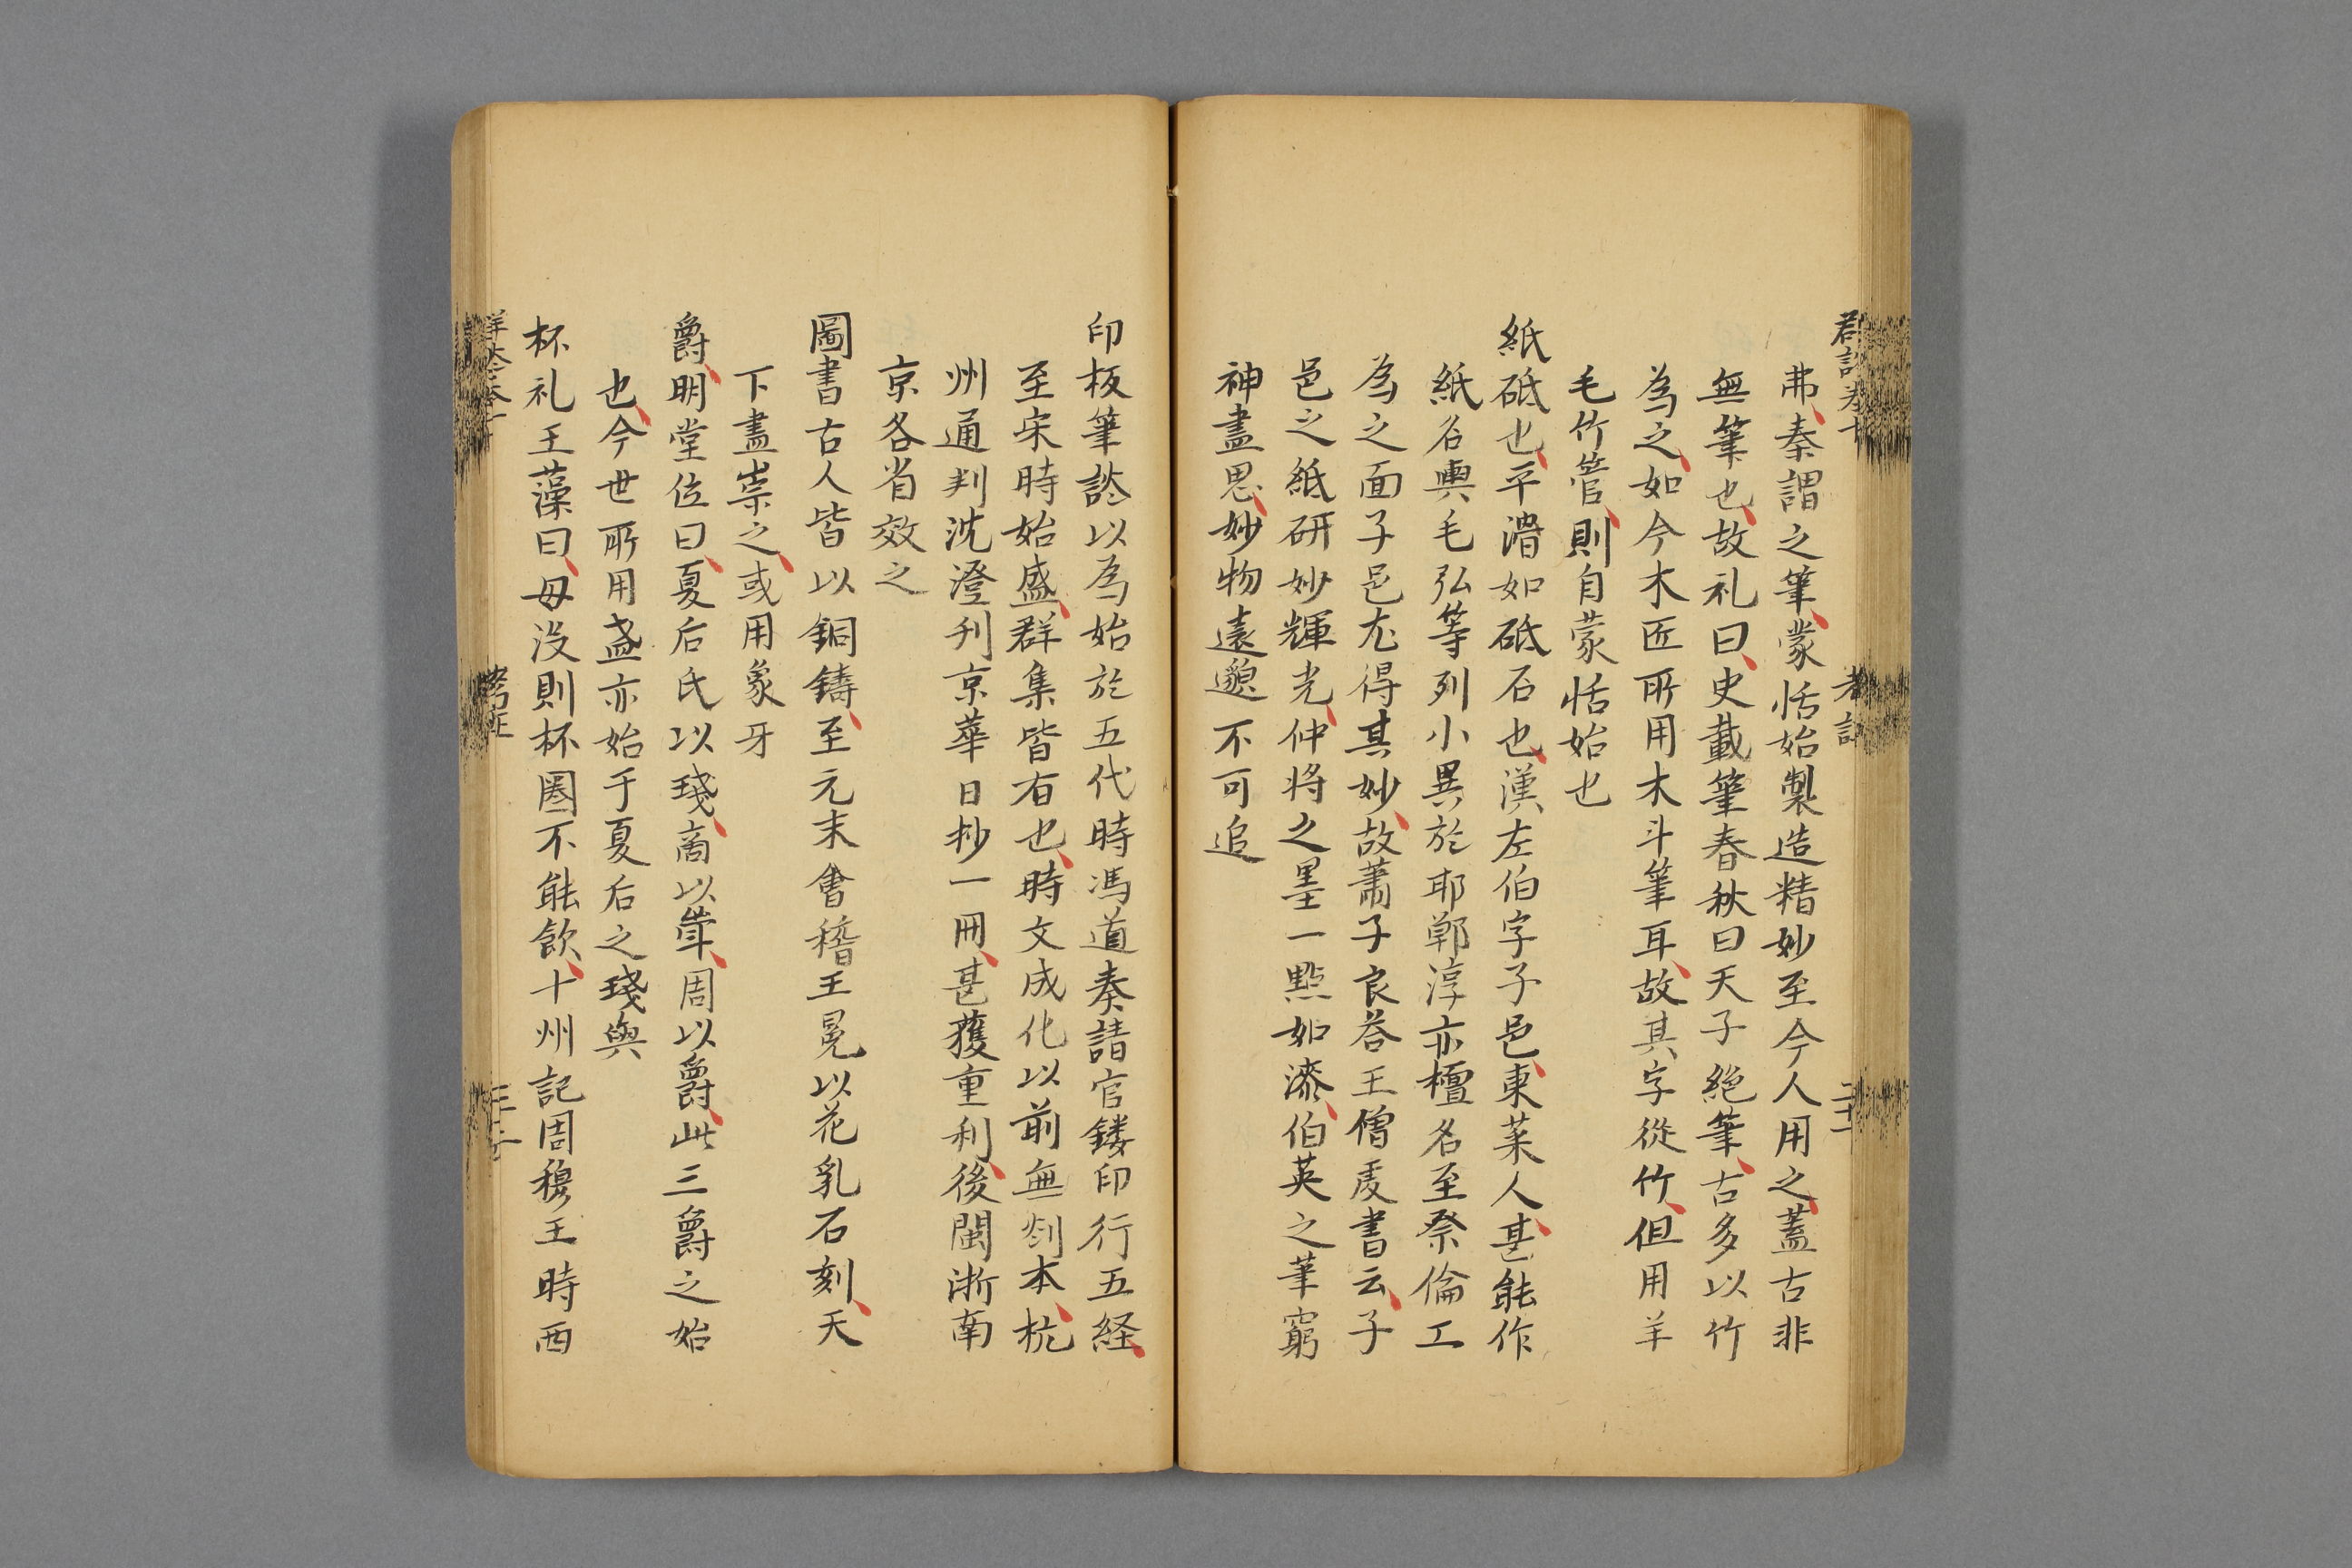 弗秦謂之筆蒙恬始製造精妙至今人用之蓋古非
無筆也故礼曰史載筆春秋曰天子絕筆古多以竹
為之如今木匠所用木斗筆耳故其字從竹但用羊
毛竹管則自蒙恬始也
紙砥也平滑如砥石也漢左伯字子邑東莱人甚能作
紙名與毛弘等列小異於邯鄲淳亦檀名至祭倫工
為之面子邑尤得其妙故蕭子良荅王僧虔書云子
邑之紙研妙輝光仲将之墨一點如漆伯英之筆窮
神盡思妙物遠邈不可追
印板筆談以為始於五代時馮道奏請官鏤印行五経
至宋時始盛群集皆有也時文成化以前無刻本杭
州通判沈澄刋京華日抄一冊甚獲重利後閩浙南
京各省效之
圖書古人皆以銅鑄至元末會稽王冕以花乳石刻天
下盡崇之或用象牙
爵明堂位曰夏后氏以琖商以斝周以爵此三爵之始
也今世所用盞亦始于夏后之琖與
杯礼王藻曰母沒則杯圈不能飲十州記周穆王時西